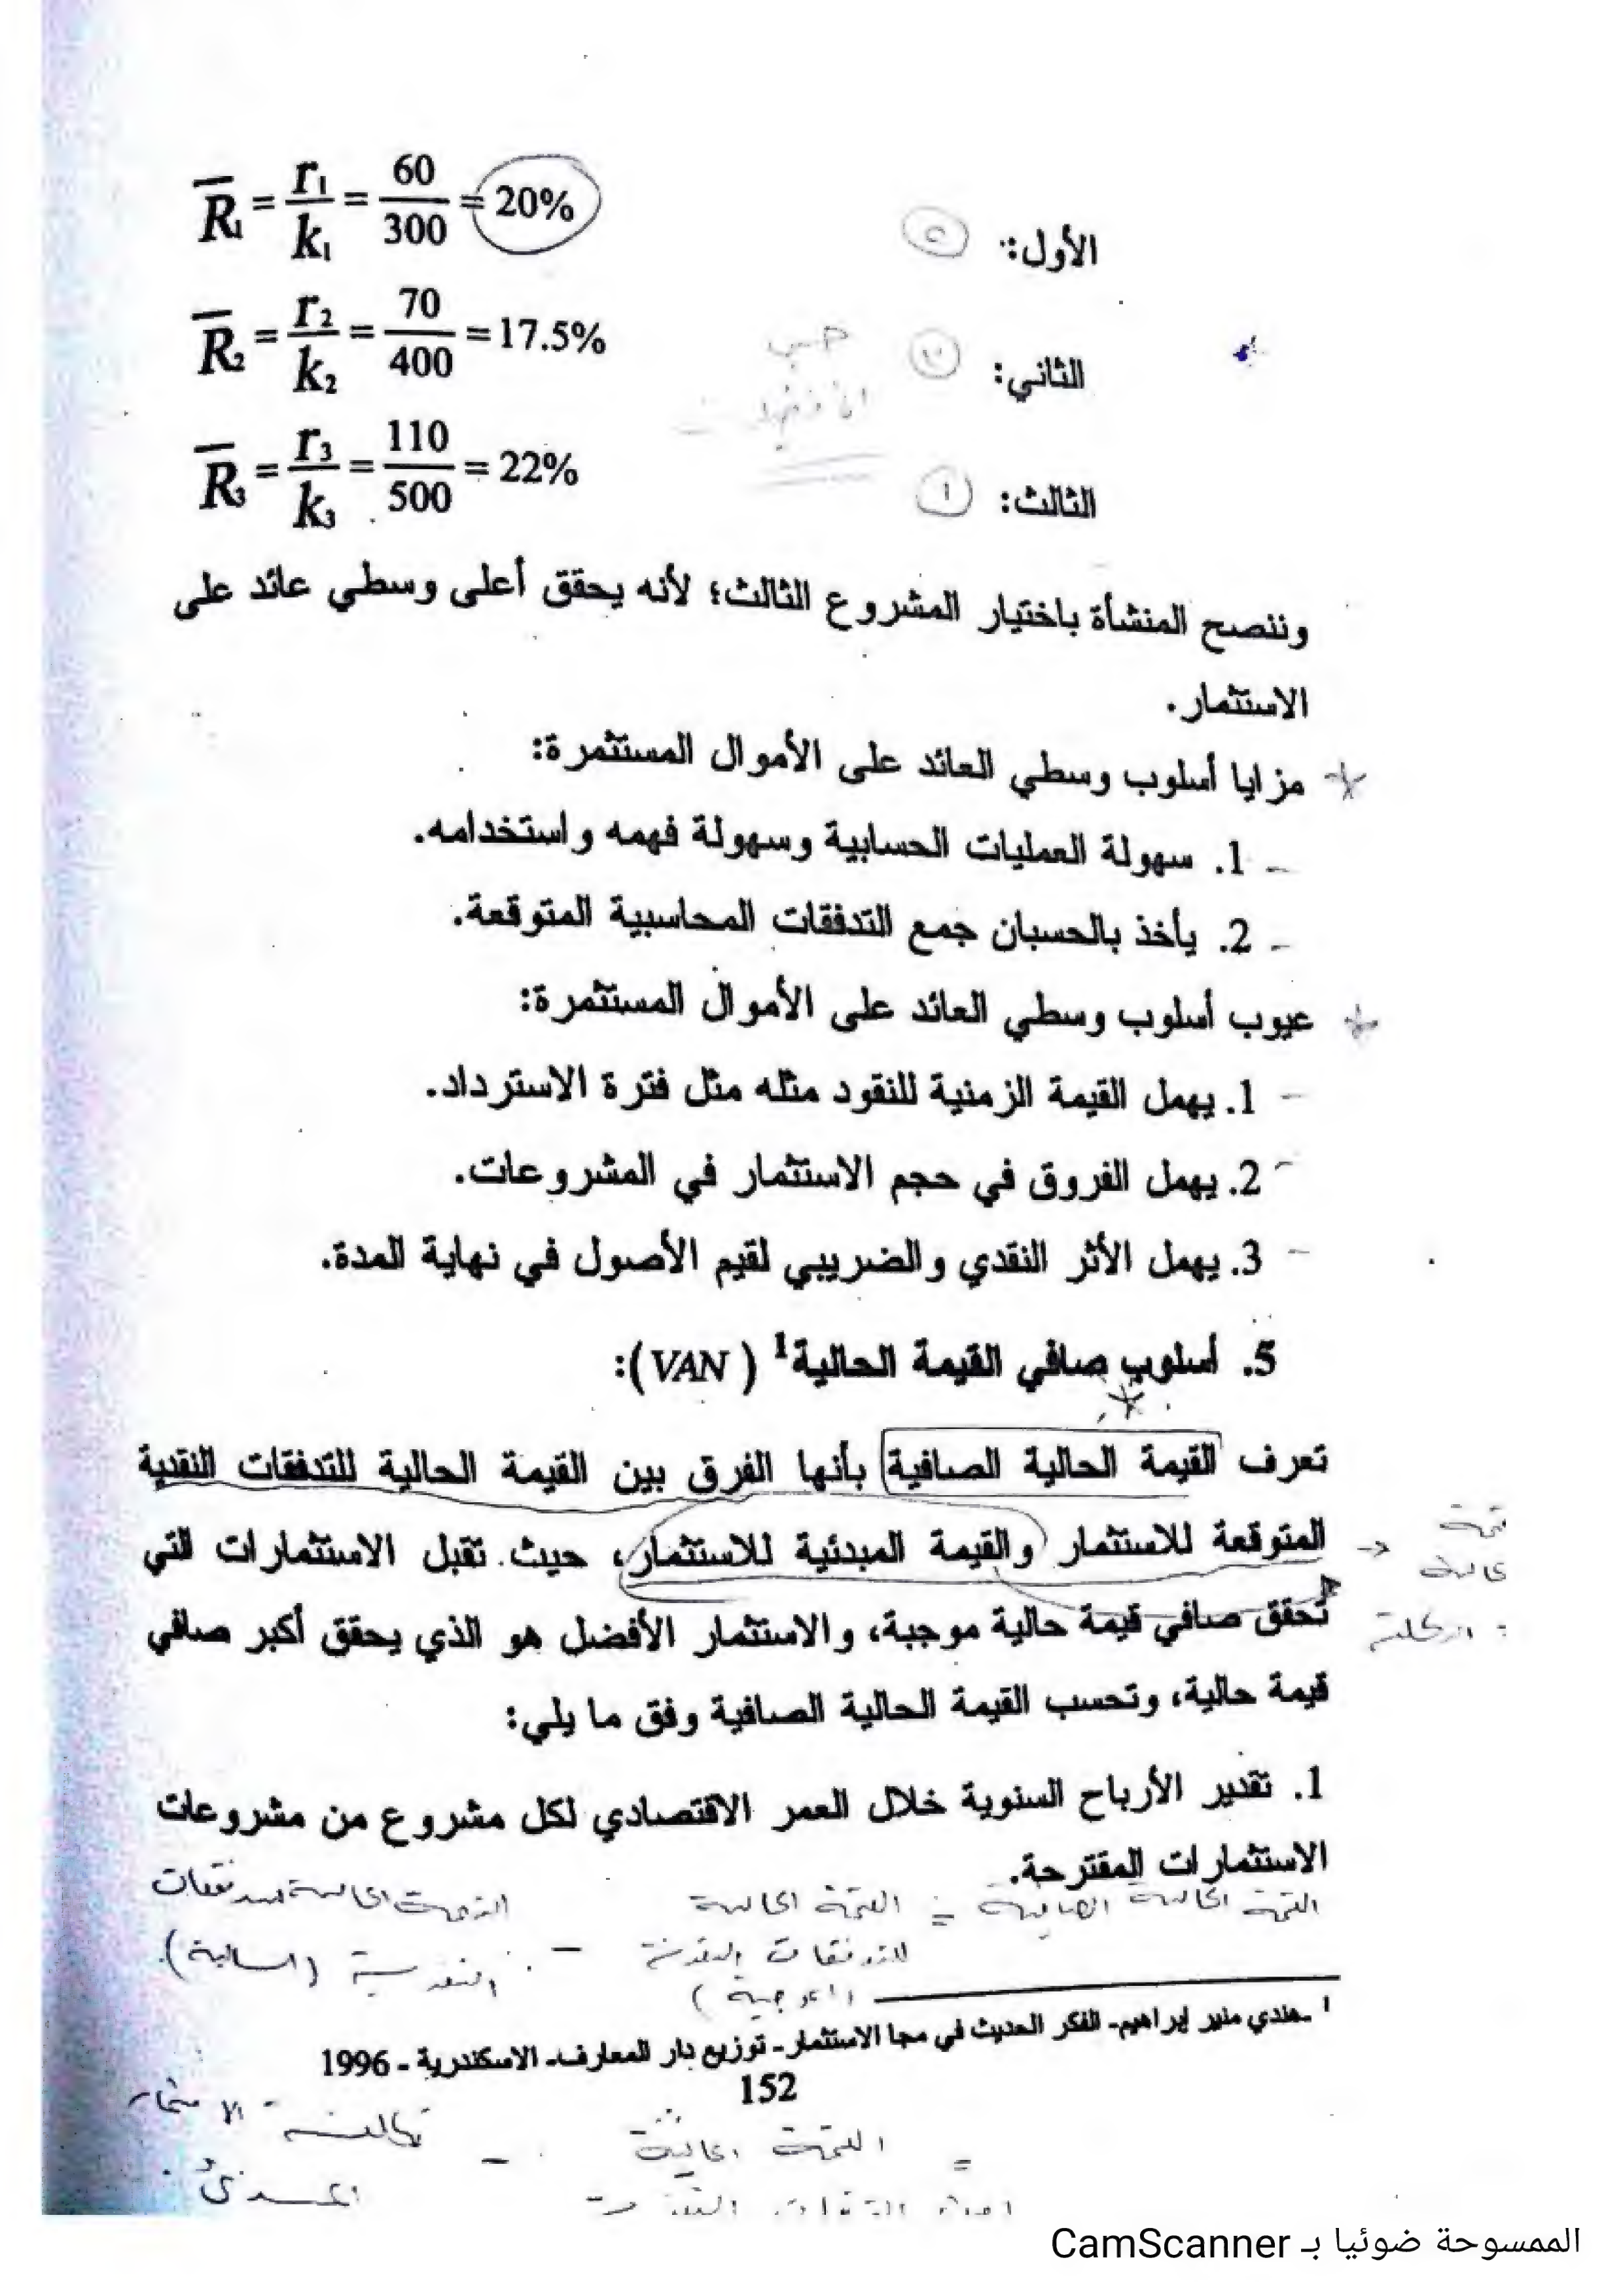 الأول: R̄1 = r1/k1 = 60/300 = 20%
الثاني: R̄2 = r2/k2 = 70/400 = 17.5%
حسب
الثالث: 1 R̄3 = r3/k3 = 110/500 = 22%
وننصح المنشأة باختيار المشروع الثالث؛ لأنه يحقق أعلى وسطي عائد على
الاستثمار.
مزايا أسلوب وسطي العائد على الأموال المستثمرة:
1. سهولة العمليات الحسابية وسهولة فهمه واستخدامه.
2. يأخذ بالحسبان جمع التدفقات المحاسبية المتوقعة.
عيوب أسلوب وسطي العائد على الأموال المستثمرة:
1. يهمل القيمة الزمنية للنقود مثله مثل فترة الاسترداد.
2. يهمل الفروق في حجم الاستثمار في المشروعات.
3. يهمل الأثر النقدي والضريبي لقيم الأصول في نهاية المدة.
5. أسلوب صافي القيمة الحالية1 (VAN):
تعرف القيمة الحالية الصافية بأنها الفرق بين القيمة الحالية للتدفقات النقدية
المتوقعة للاستثمار والقيمة المبدئية للاستثمار، حيث تقبل الاستثمارات التي
تحقق صافي قيمة حالية موجبة، والاستثمار الأفضل هو الذي يحقق أكبر صافي
قيمة حالية، وتحسب القيمة الحالية الصافية وفق ما يلي:
1. تقدير الأرباح السنوية خلال العمر الاقتصادي لكل مشروع من مشروعات
الاستثمارات المقترحة.
القيمة الحالية الصافية = القيمة الحالية للتدفقات النقدية (الموجبة) - القيمة الحالية للتدفقات النقدية (السالبة).
1 ـهندي منير إبراهيم- الفكر الحديث في مجا الاستثمار- توزيع دار المعارف- الاسكندرية - 1996
152
= القيمة الحالية - تكلفة الاستثمار
المبدئي
الممسوحة ضوئيا بـ CamScanner